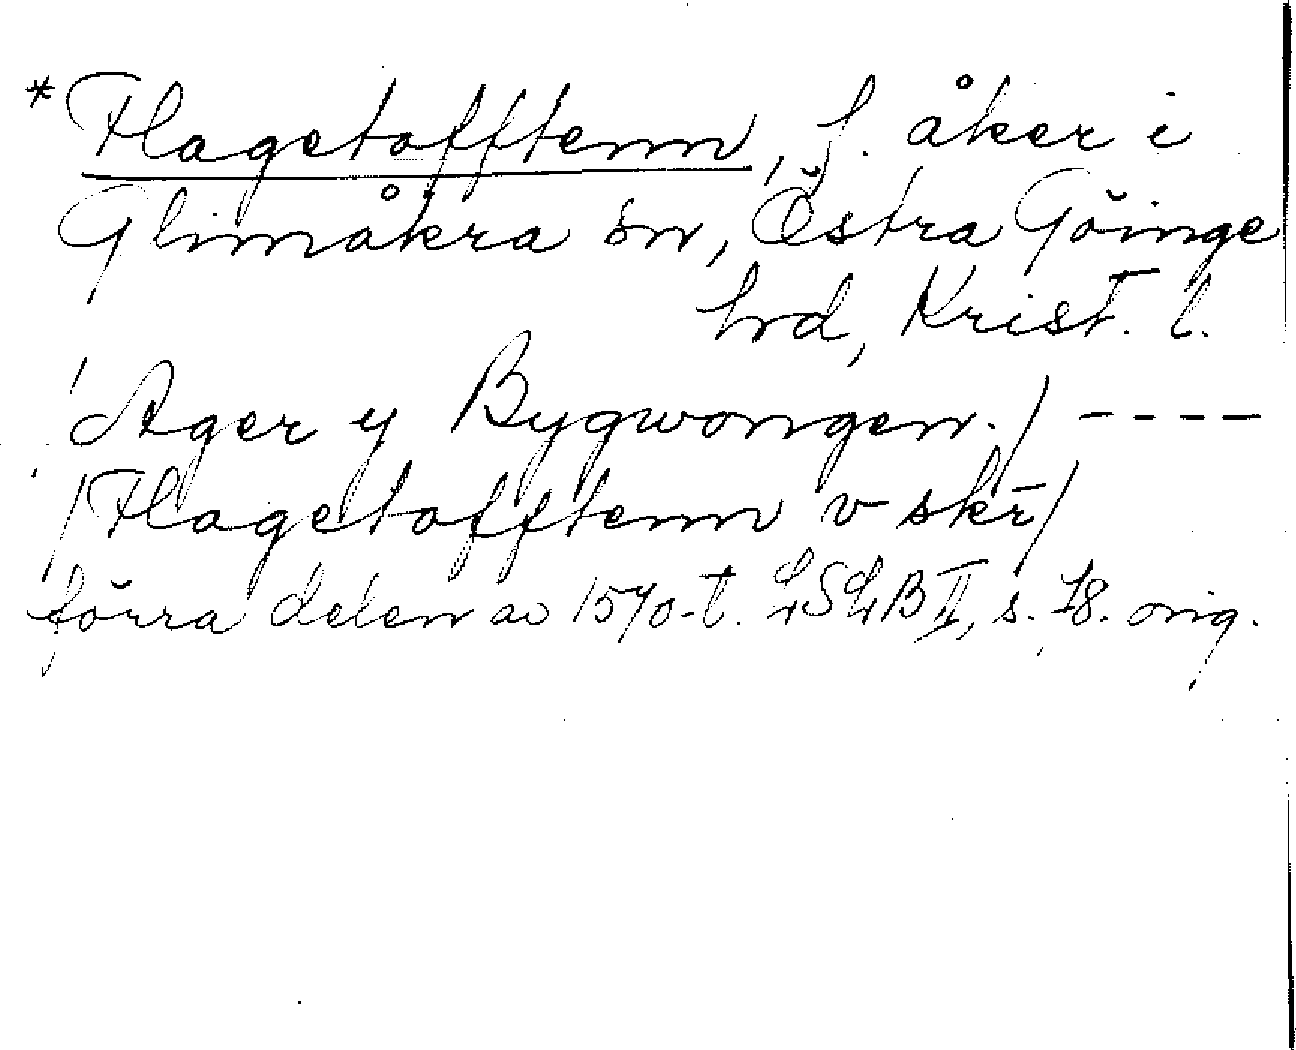 *Flagetofftenn, f. åker i
Glimåkra sn, Östra Göinge
hrd, Krist. l.
Ager y Bygwongen./ ----
/Flagetofftenn v skr/
förra delen av 1570-t. LSLB II, s. 78. orig.